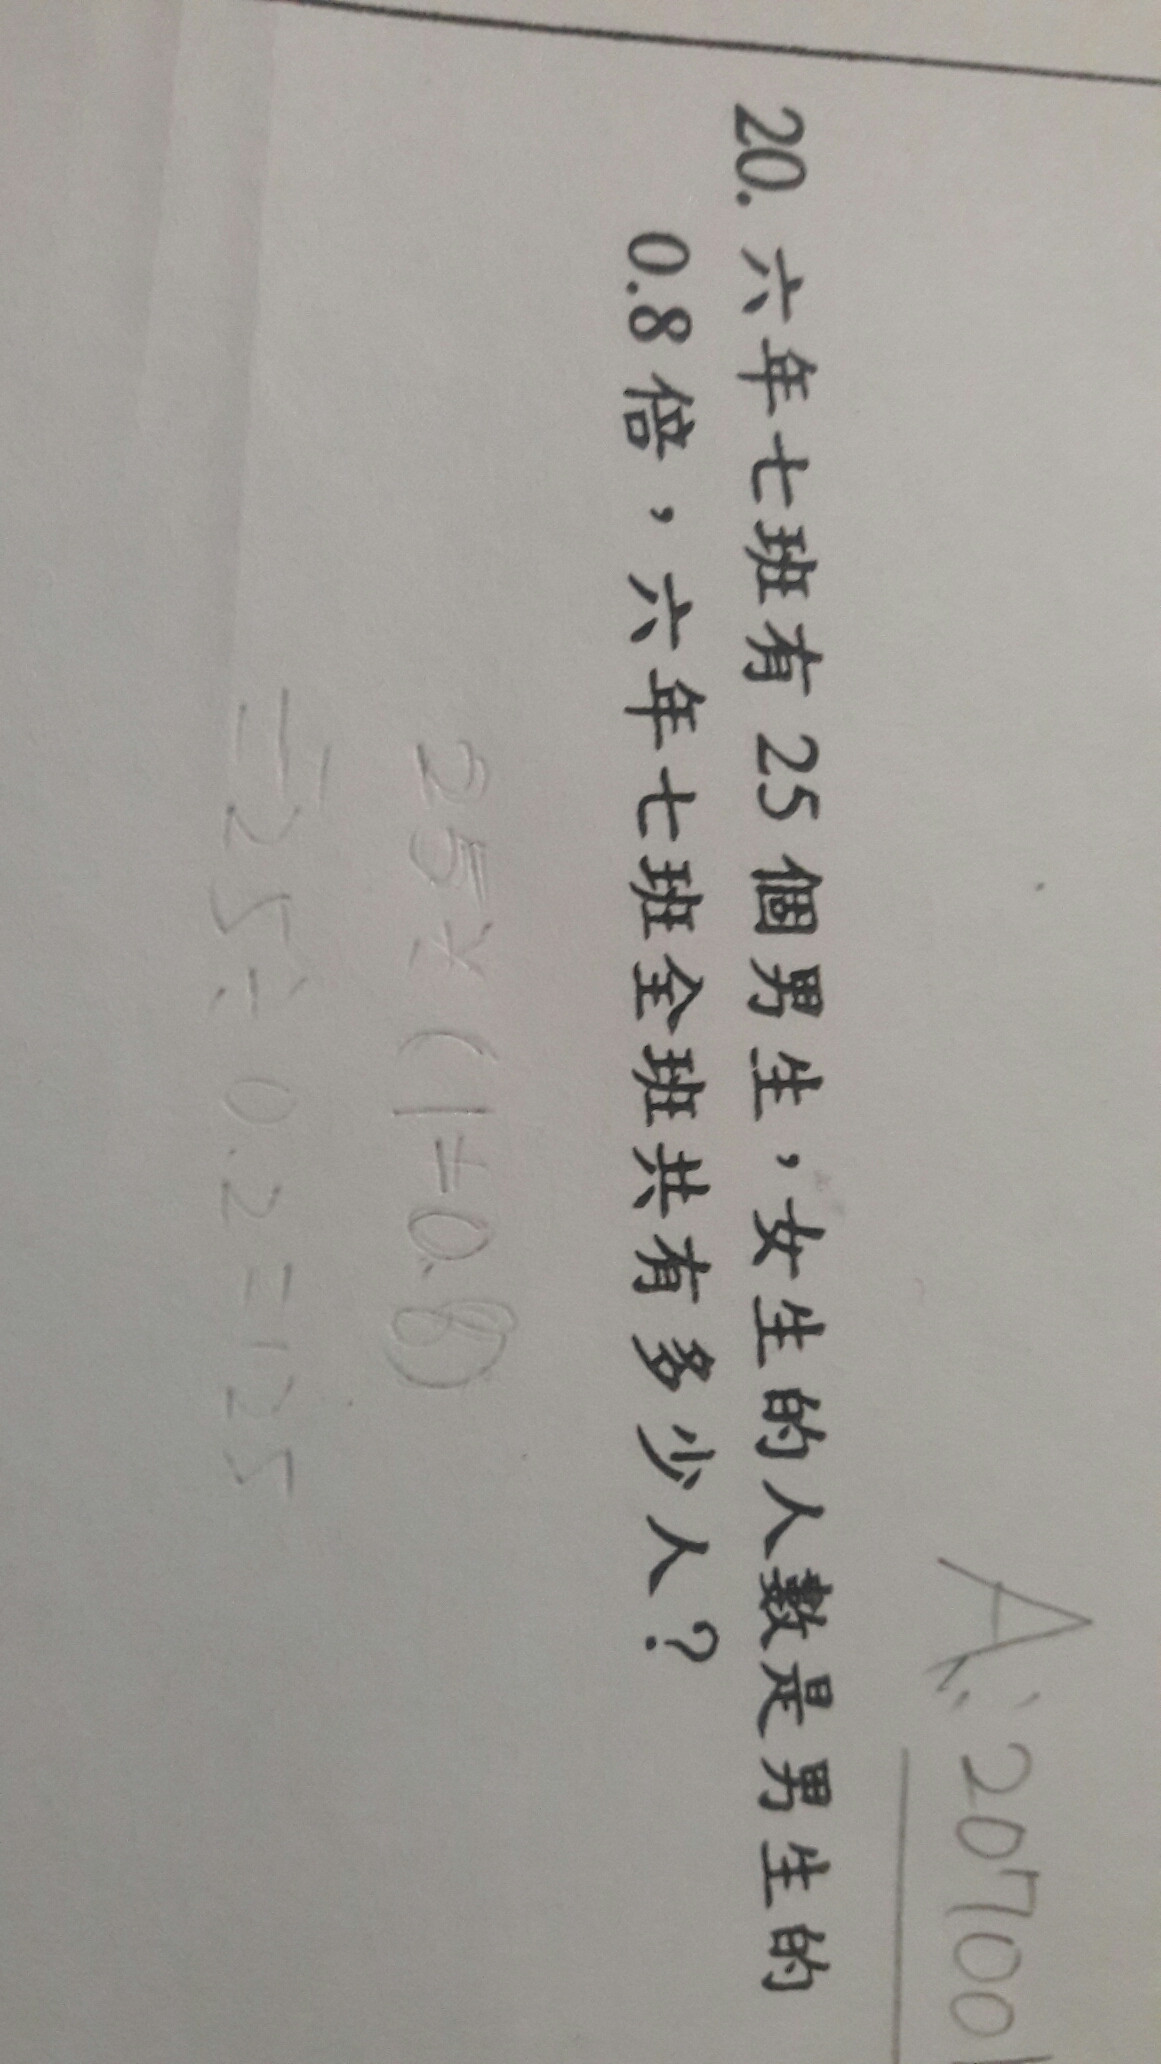 A: 20700
20. 六年七班有25個男生,女生的人數是男生的
0.8倍,六年七班全班共有多少人?
25×(1+0.8)
=25÷0.2=125